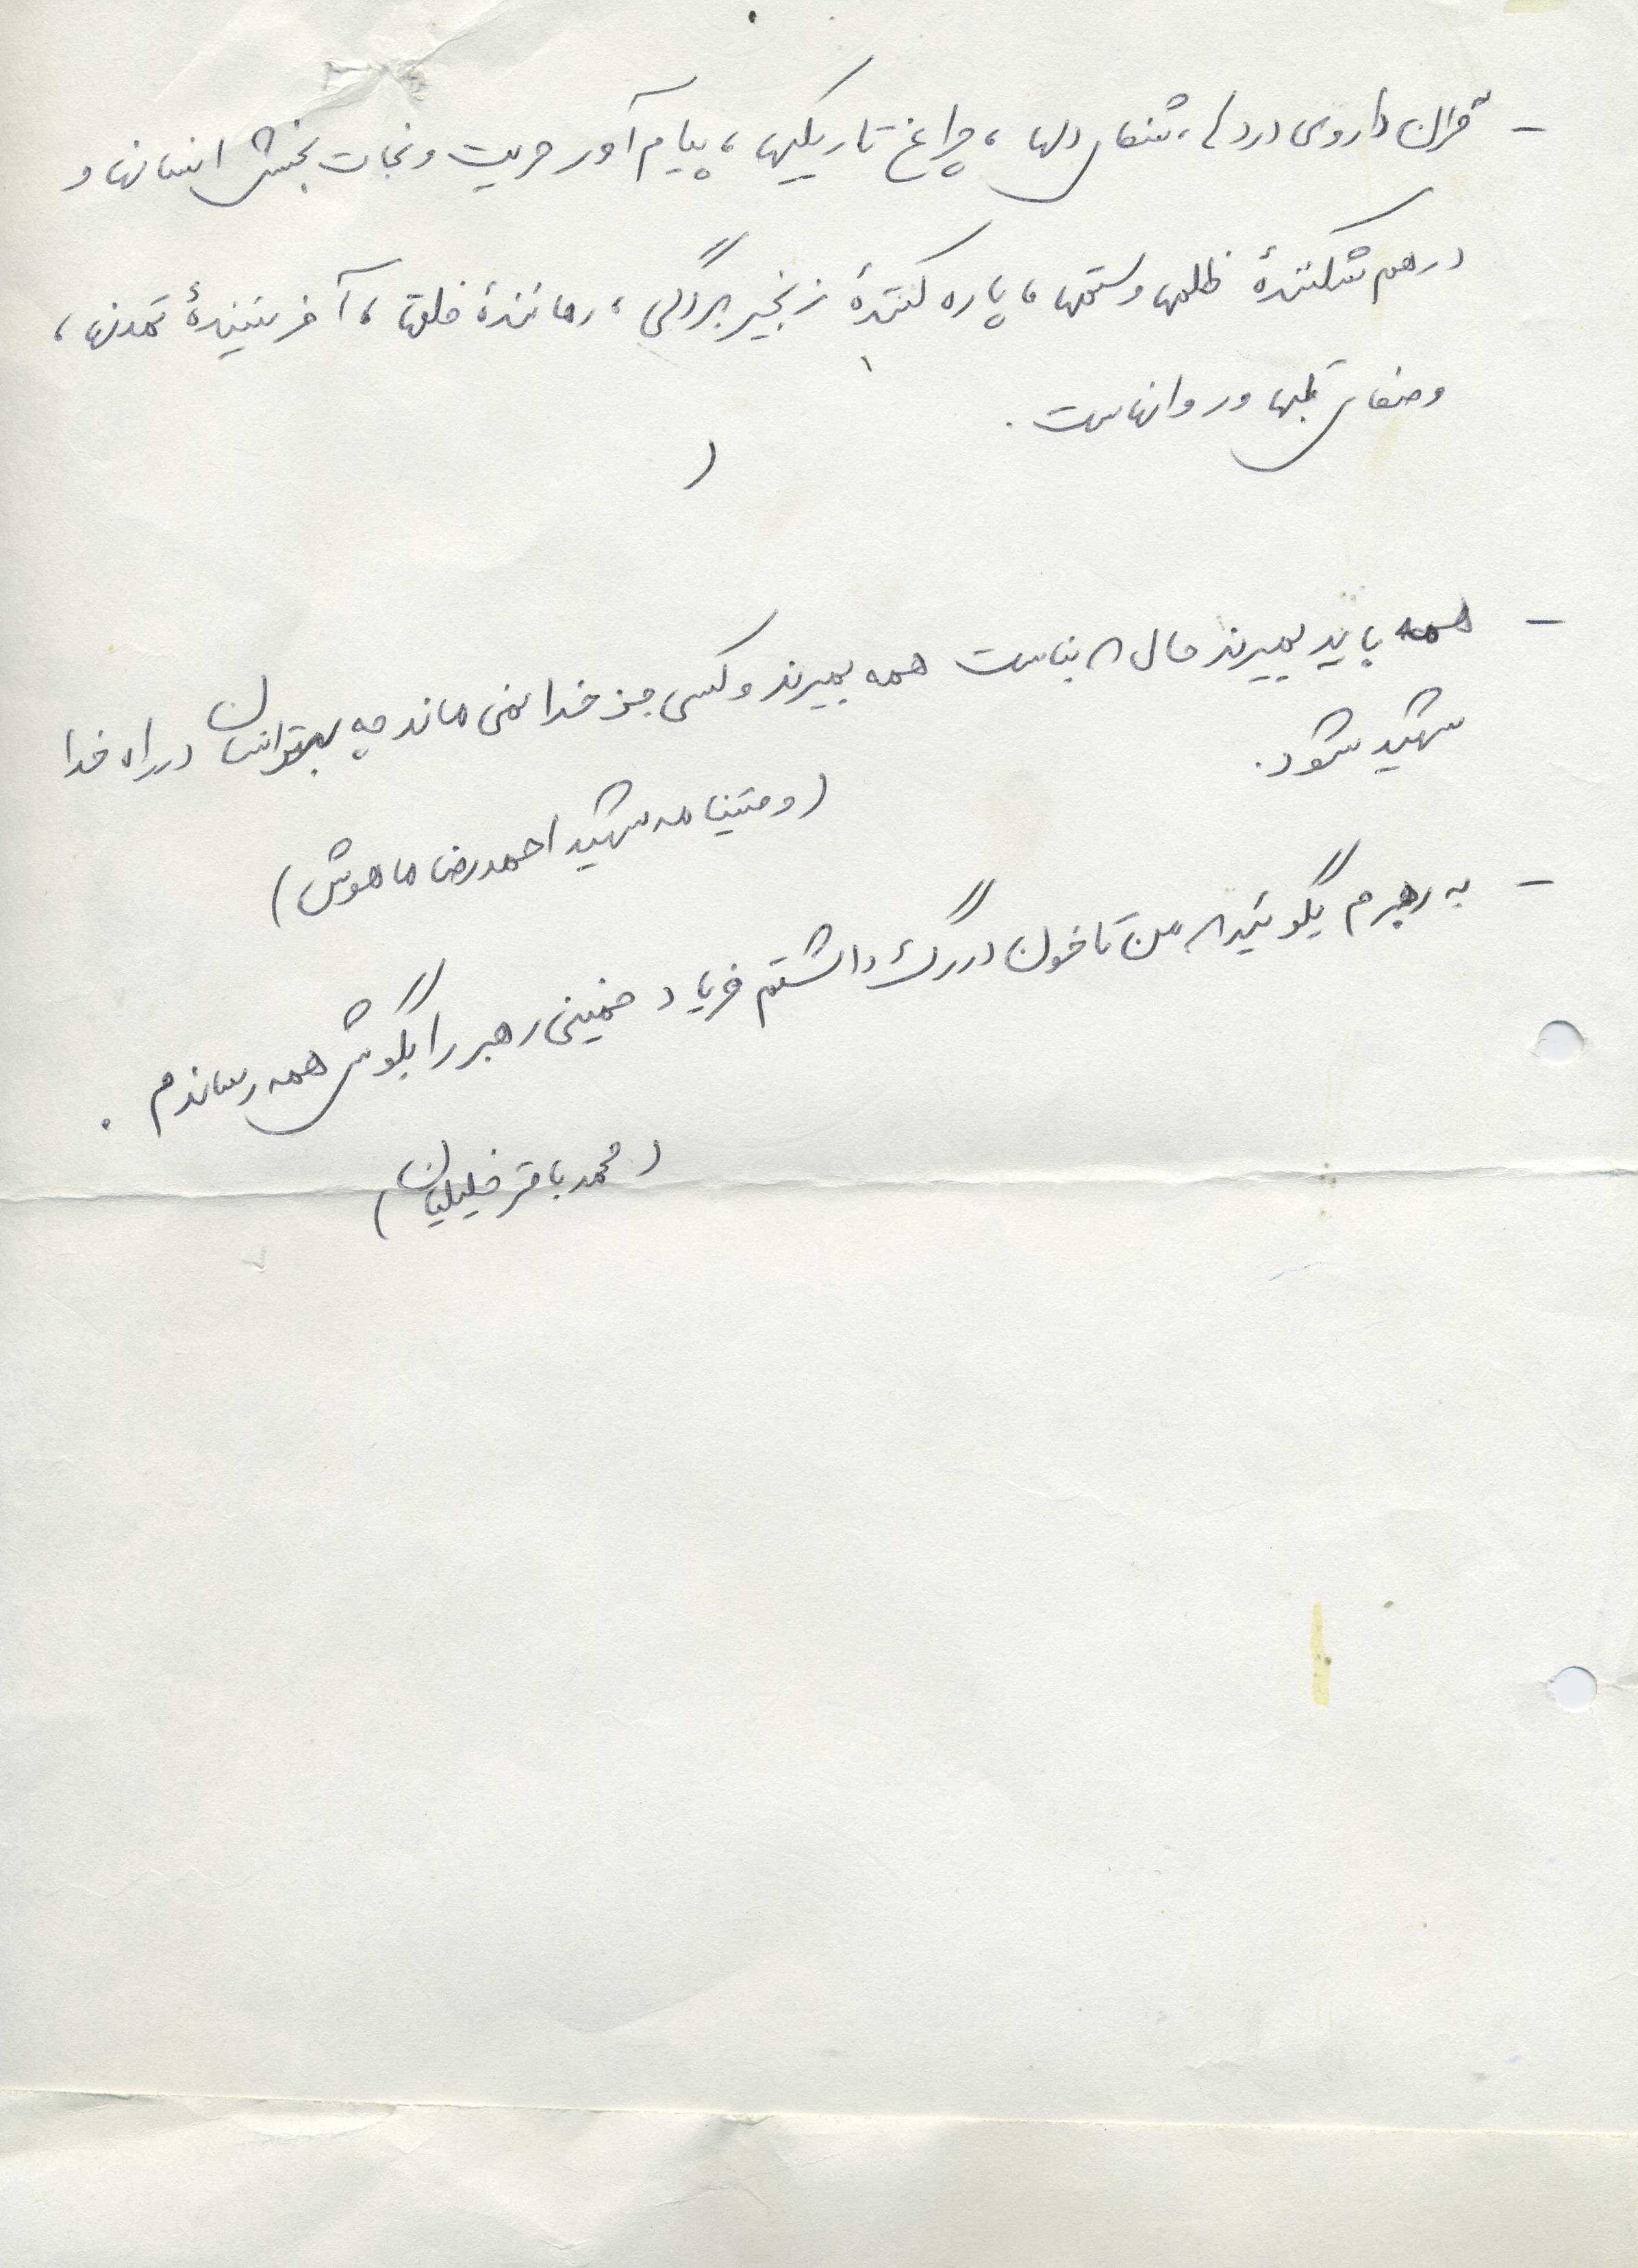 - قرآن داروی دردها، شفای دلها، چراغ تاریکیها، پیام آور حریت و نجات بخش انسانها و
درهم شکنندهٔ ظلمها و ستمها، پاره کنندهٔ زنجیر بردگی، رهانندهٔ خلقها، آفرینندهٔ تمدنها،
و صفای قلبها و روانهاست.
(
- همه باید بمیرند حال که بناست همه بمیرند و کسی جز خدا نمی ماند چه بهتر انسان در راه خدا
شهید شود.
(وصیتنامه شهید احمدرضا ماهوش)
- به رهبرم بگوئید که من تا خون در رگ داشتم فریاد خمینی رهبر را بگوش همه رساندم.
(محمد باقر خلیلیان)